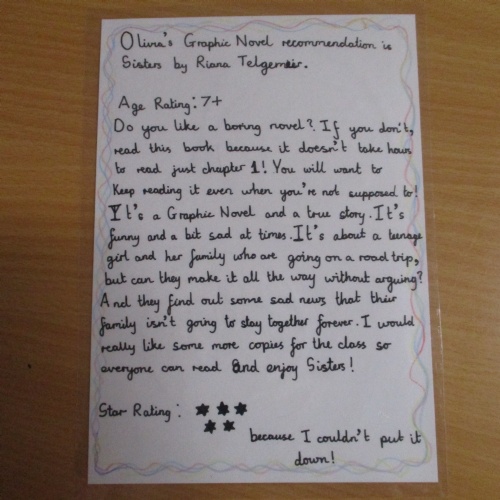 Olivia's Graphic Novel recommendation is
Sisters by Riana Telgemeir.
Age Rating: 7+
Do you like a boring novel? If you don't,
read this book because it doesn't take hours
to read just chapter 1! You will want to
Keep reading it even when you're not supposed to!
It's a Graphic Novel and a true story. It's
funny and a bit sad at times. It's about a teenage
girl and her family who are going on a road trip,
but can they make it all the way without arguing?
And they find out some sad news that their
family isn't going to stay together forever. I would
really like some more copies for the class so
everyone can read and enjoy Sisters!
Star Rating: ★ ★ ★
★ ★
because I couldn't put it
down!